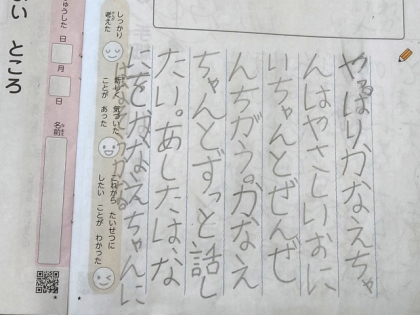 やはりかなえちゃ
んはやさしいおに
いちゃんとぜんぜ
んちがう。かなえ
ちゃんとずっと話し
たい。あしたは、な
にをかなえちゃんに
はなそうかな。
しっかり
考えた
新しく 気づいた
ことが あった
これから たいせつに
したい ことが わかった
ゅうした 日
月
日
名前
い ところ